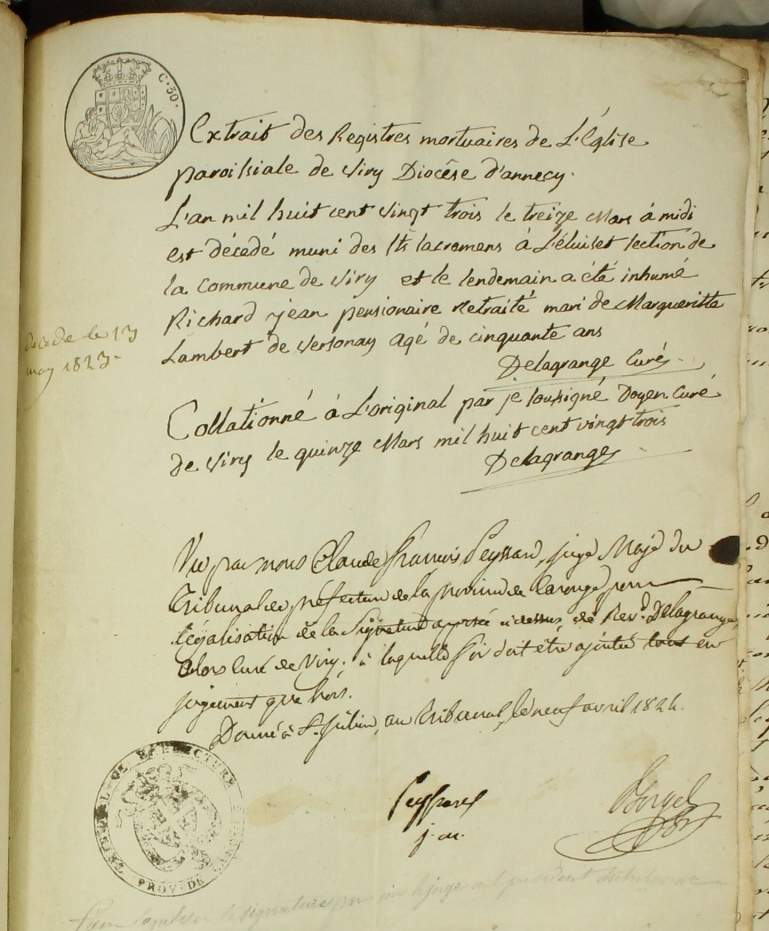 C. 50.
Extrait des Registres mortuaires de L'Église
paroissiale de Viry Diocèse d'annecy.
L'an mil huit cent vingt trois le treize Mars à midi
est décédé muni des Sts sacremens à L'éluiset section de
la Commune de Viry et le lendemain a été inhumé
Richard jean pensionaire retraité mari de Margueritte
Lambert de Versonay agé de cinquante ans
décédé le 13
1823
Delagrange Curé
Collationné à L'original par je soussigné Doyen Curé
de Viry le quinze Mars mil huit cent vingt trois
Delagrange
Vu par nous Claude François Peyssard, juge Maje du
Tribunal de préfecture de la province de Carouge pour
légalisation de la Signature apposée ci dessus, de Revd Delagrange
alors curé de Viry, à laquelle foi doit être ajoutée tout en
jugement que hors.
Donné à St julien, au Tribunal, le neuf avril 1824.
TRIBUNAL DE PREFECTURE
PROV. DE
Peyssard
j. m.